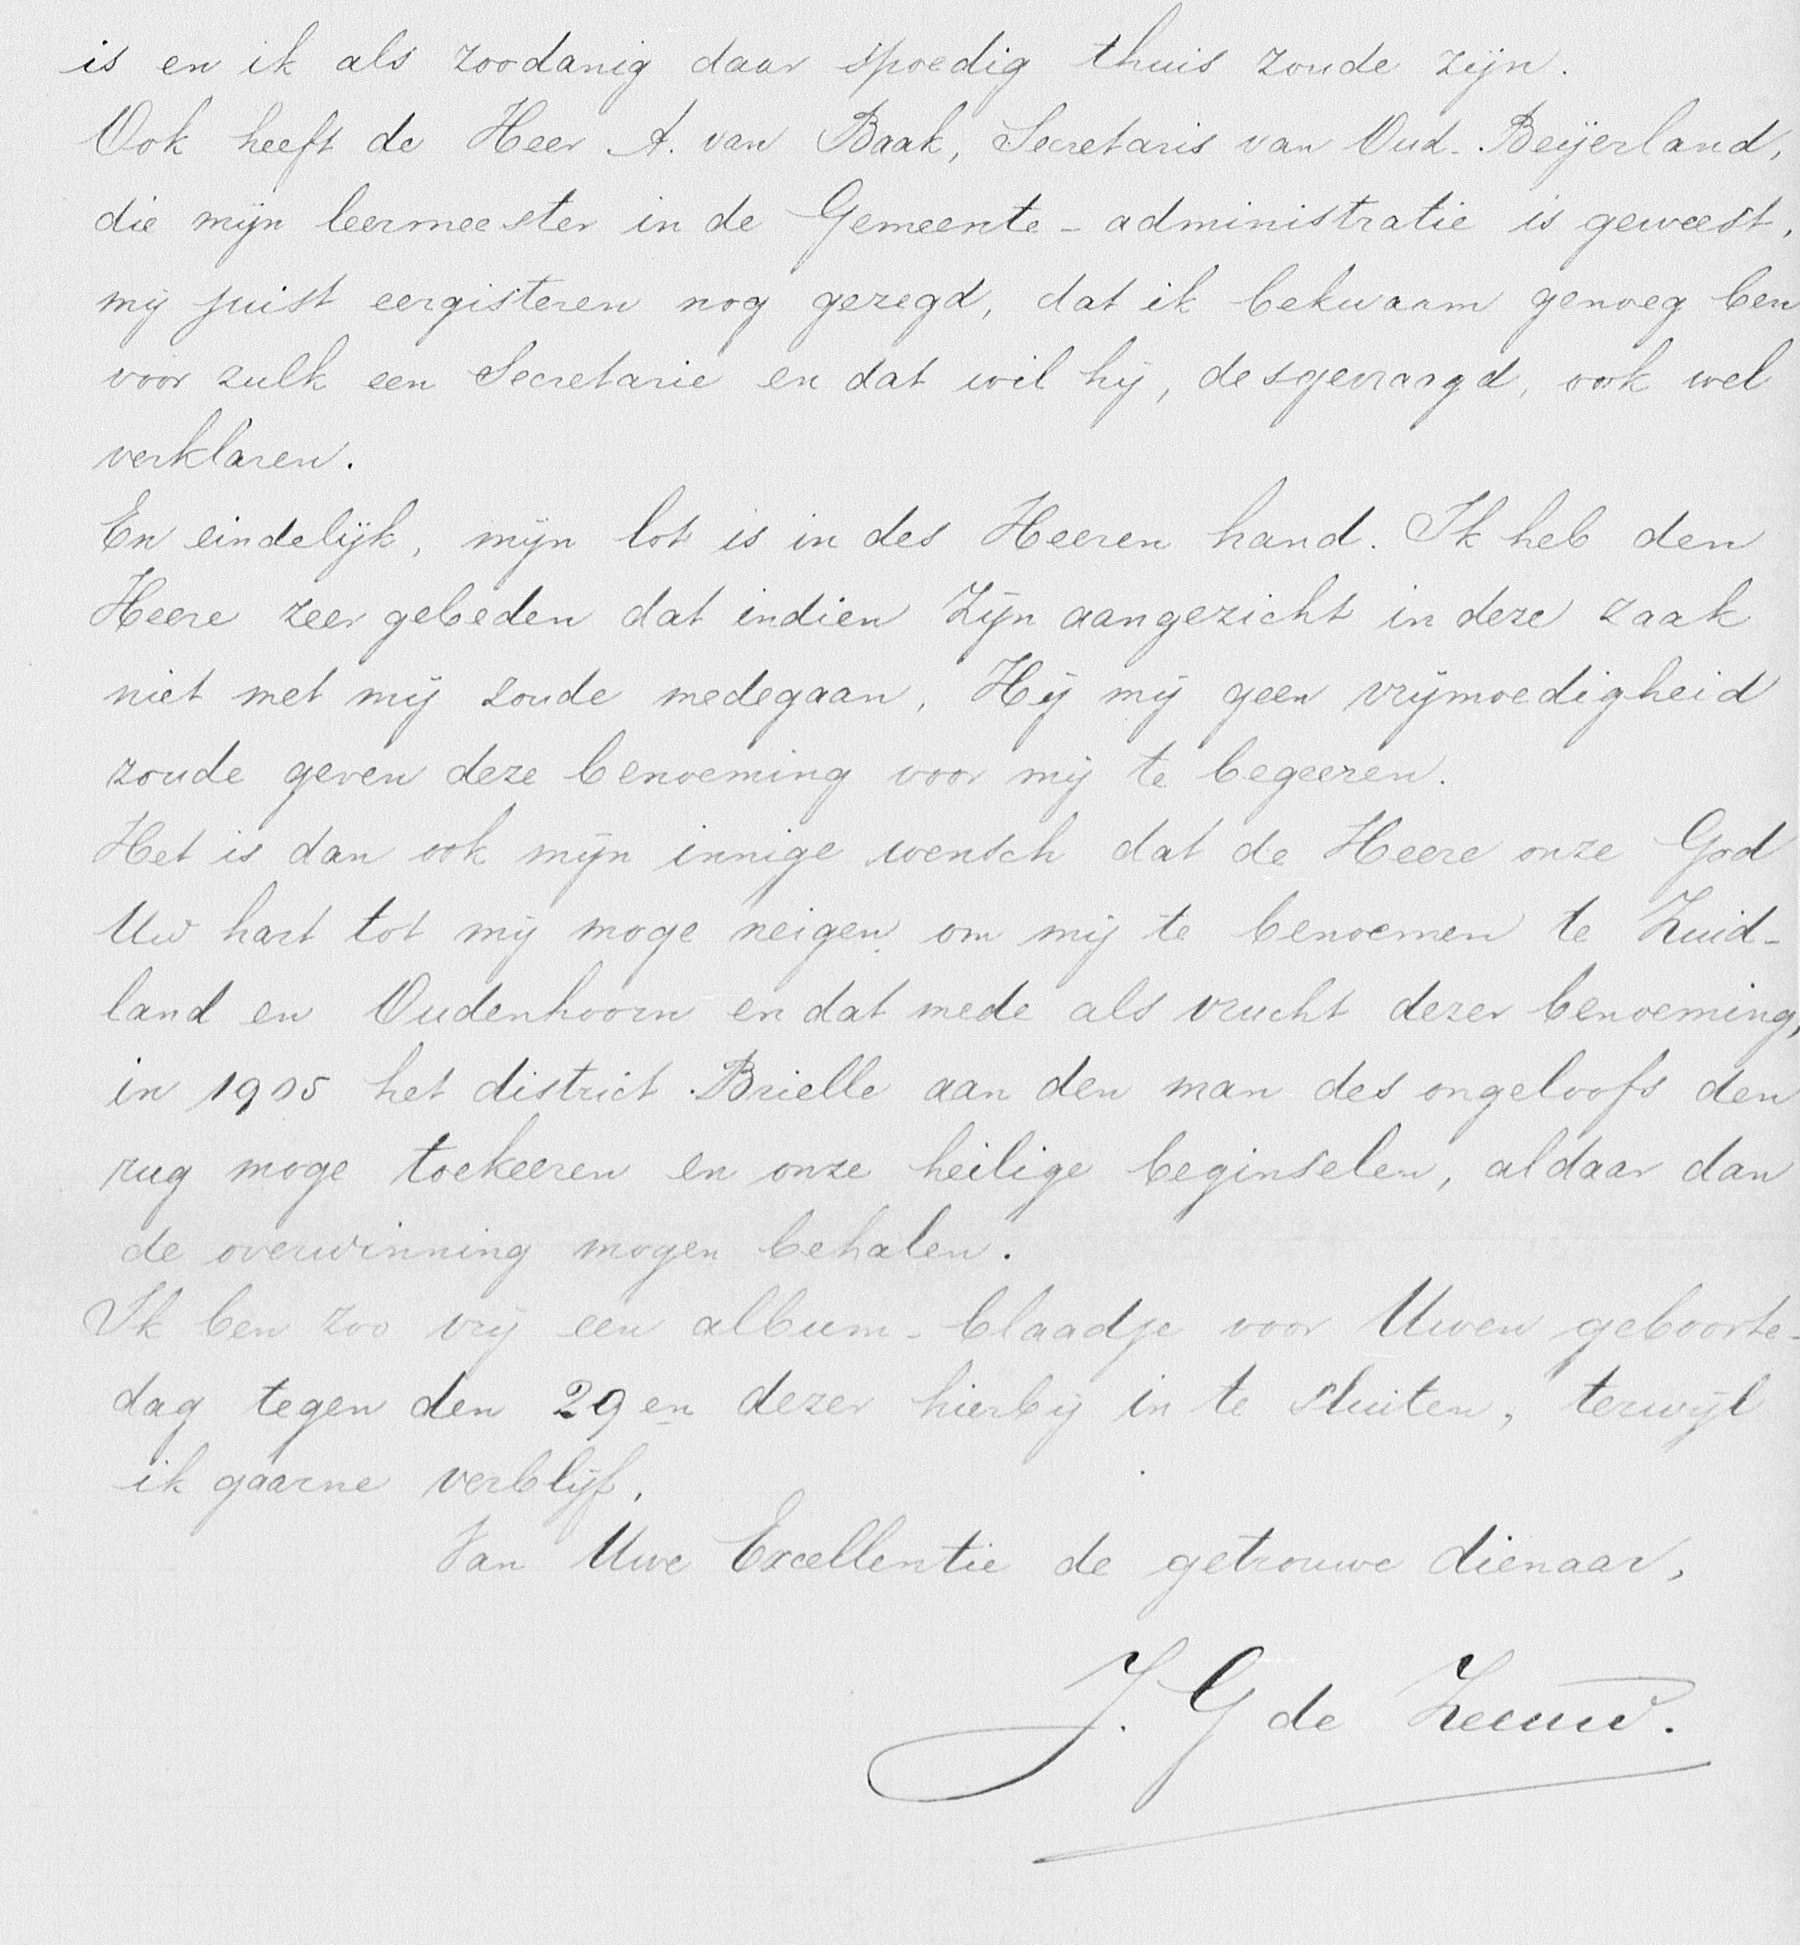 is en ik als zoodanig daar spoedig thuis zoude zijn.
Ook heeft de Heer A. van Baak, Secretaris van Oud-Beijerland,
die mijn leermeester in de Gemeente-administratie is geweest,
mij juist eergisteren nog gezegd, dat ik bekwaam genoeg ben
voor zulk een Secretarie en dat wil hij, desgevraagd, ook wel
verklaren.
En eindelijk, mijn lot is in des Heeren hand. Ik heb den
Heere zeer gebeden dat indien Zijn aangezicht in deze zaak
niet met mij zoude medegaan, Hij mij geen vrijmoedigheid
zoude geven deze benoeming voor mij te begeeren.
Het is dan ook mijn innige wensch dat de Heere onze God
Uw hart tot mij moge neigen om mij te benoemen te Zuid-
land en Oudenhoorn en dat mede als vrucht dezer benoeming,
in 1905 het district Brielle aan den man des ongeloofs den
rug moge toekeeren en onze heilige beginselen, aldaar dan
de overwinning mogen behalen.
Ik ben zoo vrij een album-blaadje voor Uwen geboorte-
dag tegen den 29en dezer hierbij in te sluiten, terwijl
ik gaarne verblijf,
Van Uwe Excellentie de getrouwe dienaar,
J. G de Zeeuw.